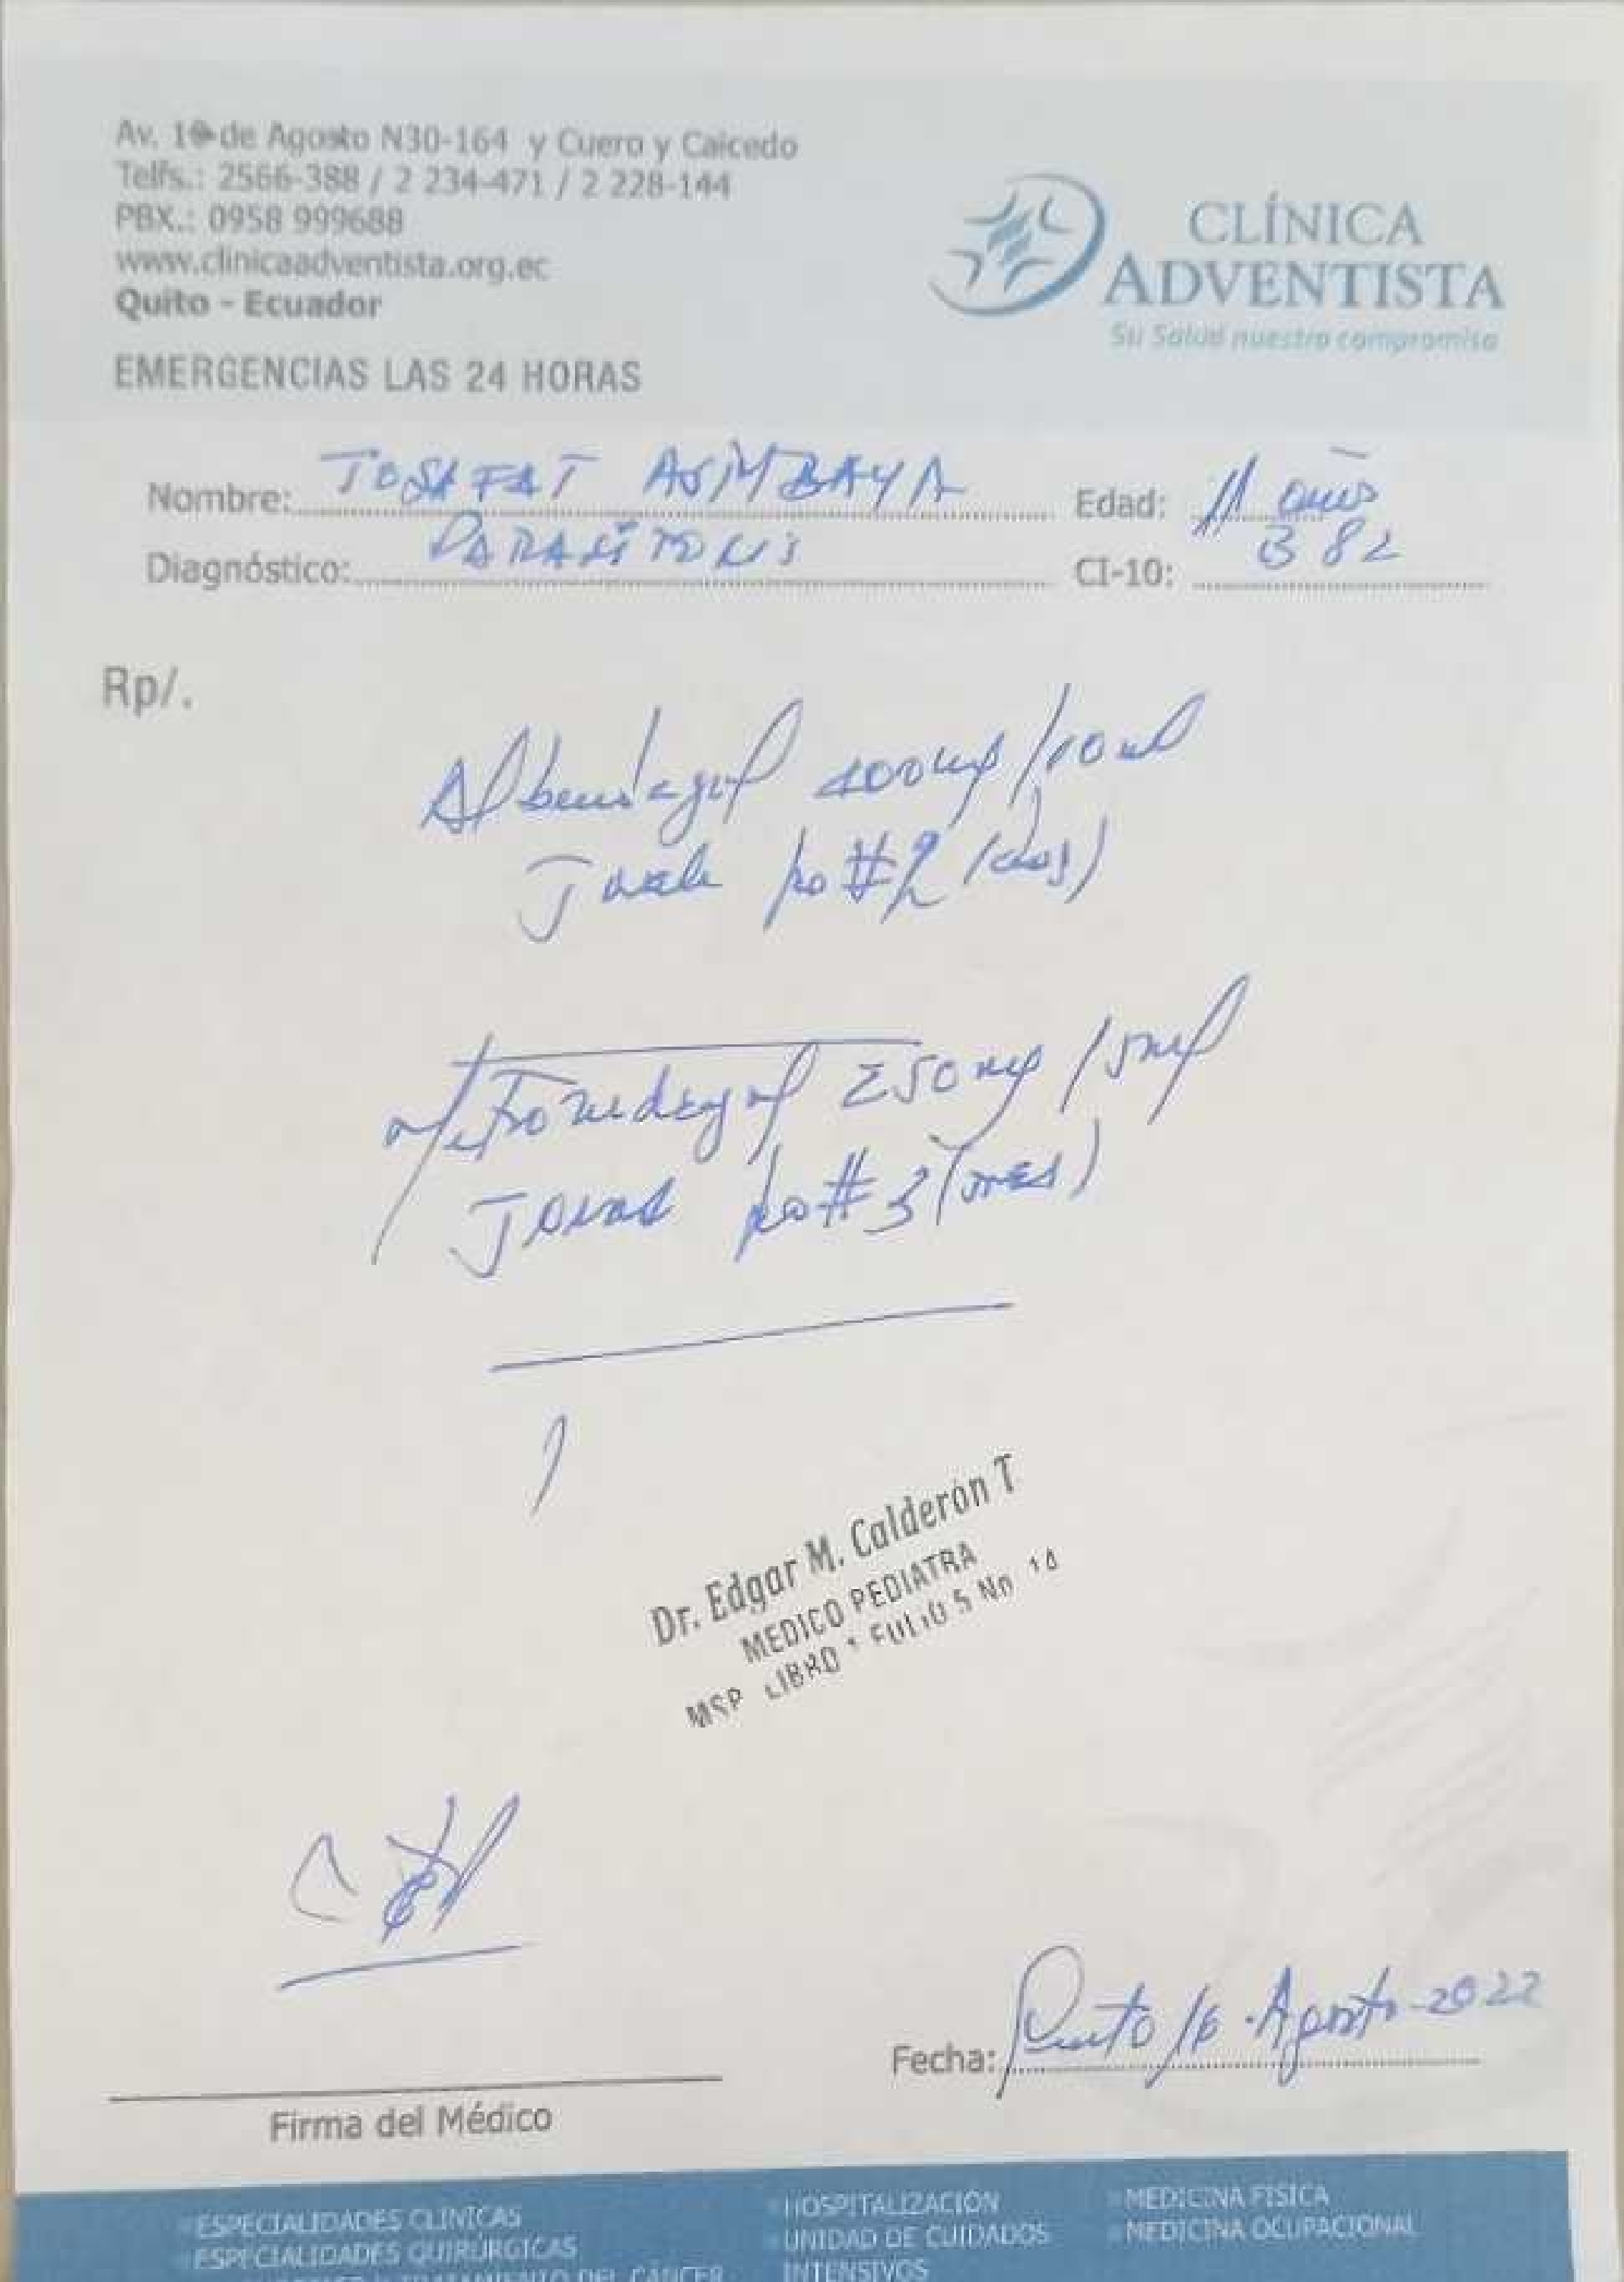 Av. 10 de Agosto N30-164 y Cuero y Caicedo
Telfs.: 2566-388 / 2 234-471 / 2 228-144
PBX.: 0958 999688
www.clinicaadventista.org.ec
Quito - Ecuador
EMERGENCIAS LAS 24 HORAS
CLÍNICA
ADVENTISTA
Su Salud nuestro compromiso
Nombre: JOSAFAT Edad: 11 años
Diagnóstico: CI-10: B 82
Rp/.
Albendazol 400mg/10ml
#2 (dos)
Metronidazol 250mg/5ml
#3 (tres)
Dr. Edgar M. Calderón T
MEDICO PEDIATRA
MSP LIBRO 1 FOLIO 5 No 14
Fecha: 16 Agosto-2022
Firma del Médico
ESPECIALIDADES CLÍNICAS
ESPECIALIDADES QUIRÚRGICAS
TRATAMIENTO DEL CÁNCER
HOSPITALIZACIÓN
UNIDAD DE CUIDADOS
INTENSIVOS
MEDICINA FÍSICA
MEDICINA OCUPACIONAL